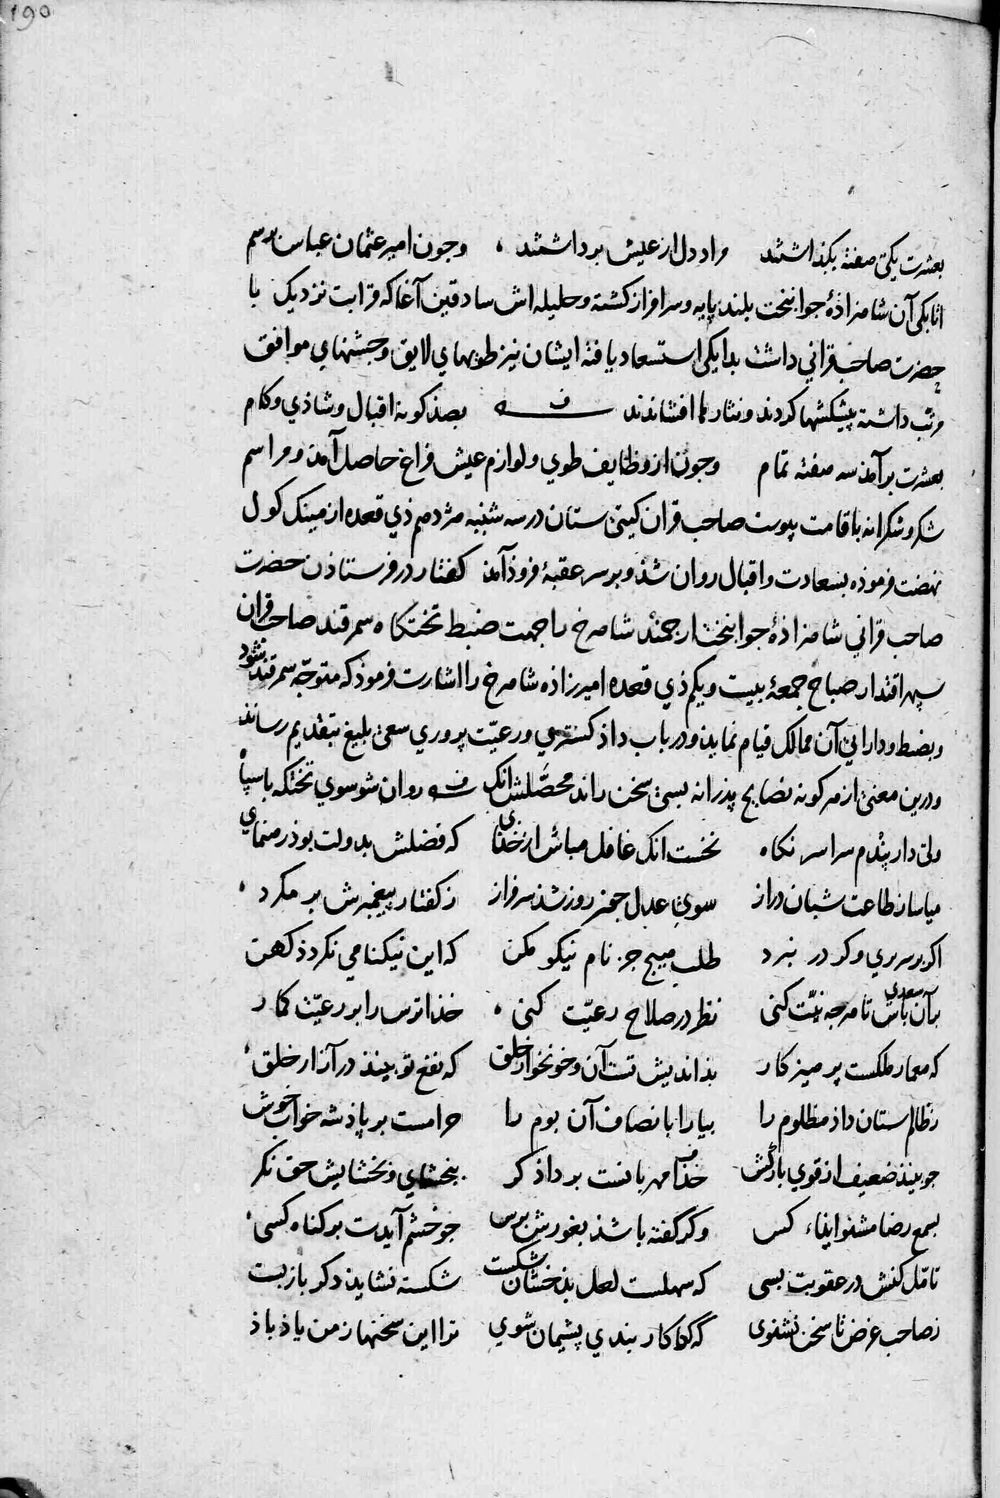 ۱۹۵
بعشرت یکی هفته بگذاشتند مراد دل از عیش برداشتند ، وجون امیر عثمان عباس برسم
اتابکی آن شاهزاذهٔ جوانبخت بلند پایه و سرافراز کشته و حلیله اش سادقین آغا که قرابت نزدیک با
حضرت صاحب قرانی داشت بدایکی استسعاد یافته ایشان نیز طویهای لایق و جشنهای موافق
مرتب داشته پیشکشها کردند و نثارها افشاندند بصذ کونه اقبال و شاذی و کام
بعشرت برآمذ سه هفته تمام وجون از وظایف طوی و لوازم عیش فراغ حاصل آمذ و مراسم
شکر و شکرانه باقامت پیوست صاحب قران کیتی ستان در سه شنبه هژدهم ذی قعده از مینک کول
نهضت فرموذه بسعادت و اقبال روان شذ و بر سر عقبهٔ فروذ آمذ کفتار در فرستاذن حضرت
صاحب قرانی شاهزاذهٔ جوانبخت ارجمند شاهرخ را جهت ضبط تختکاه سمرقند صاحب قران
سپهر اقتدار صباح جمعهٔ بیست و یکم ذی قعده امیرزاذه شاهرخ را اشارت فرموذ که متوجّه سمرقند شود
و بضبط و دارائیِ آن ممالک قیام نمایذ و در باب داذ کستری و رعیّت پروری سعی بلیغ بتقدیم رسانذ
و درین معنی از هر کونه نصایح پذرانه بسی سخن راند محصَّلش انک روان شو سوی تختکه با سپاه
ولی دار پندم سراسر نکاه نخست انک غافل مباش از خذای که فضلش بدولت بوذ رهنمای
میاسا ز طاعت شبان دراز سوی عدل جون روز شذ سرفراز ز کفتار پیغمبرش بر مکرد ،
اکر بر سریری وکر در نبرد طلب هیج جز نام نیکو مکن که این نیکنامی نکردذ کهن
سعدی
برآن باش تا هرجه نیّت کنی نظر در صلاح رعیّت کنی ، خذا ترس را بر رعیّت کمار
که معمار ملکست پرهیزکار بذاندیش تست آن و خونخوار خلق که نفع تو بینذ در آزار خلق ،
ز ظالم ستان داذ مظلوم را بیارا بانصاف آن بوم را حرامست بر پاذشه خواب خوش
جو بینذ ضعیف از قوی بارکش خذا مهربانست بر داذ کر ببخشای و بخشایش حق نکر
بسمع رضا مشنو ایذاء کس وکر کفته باشذ بغورش برس جو خشم آیدت بر کناه کسی ،
تامّل کنش در عقوبت بسی که سهلست لعل بذخشان شکست شکسته نشایذ دکر باز بست
ز صاحب غرض تا سخن نشنوی که کر کار بندی پشیمان شوی ترا این سخنها ز من یاذ باذ